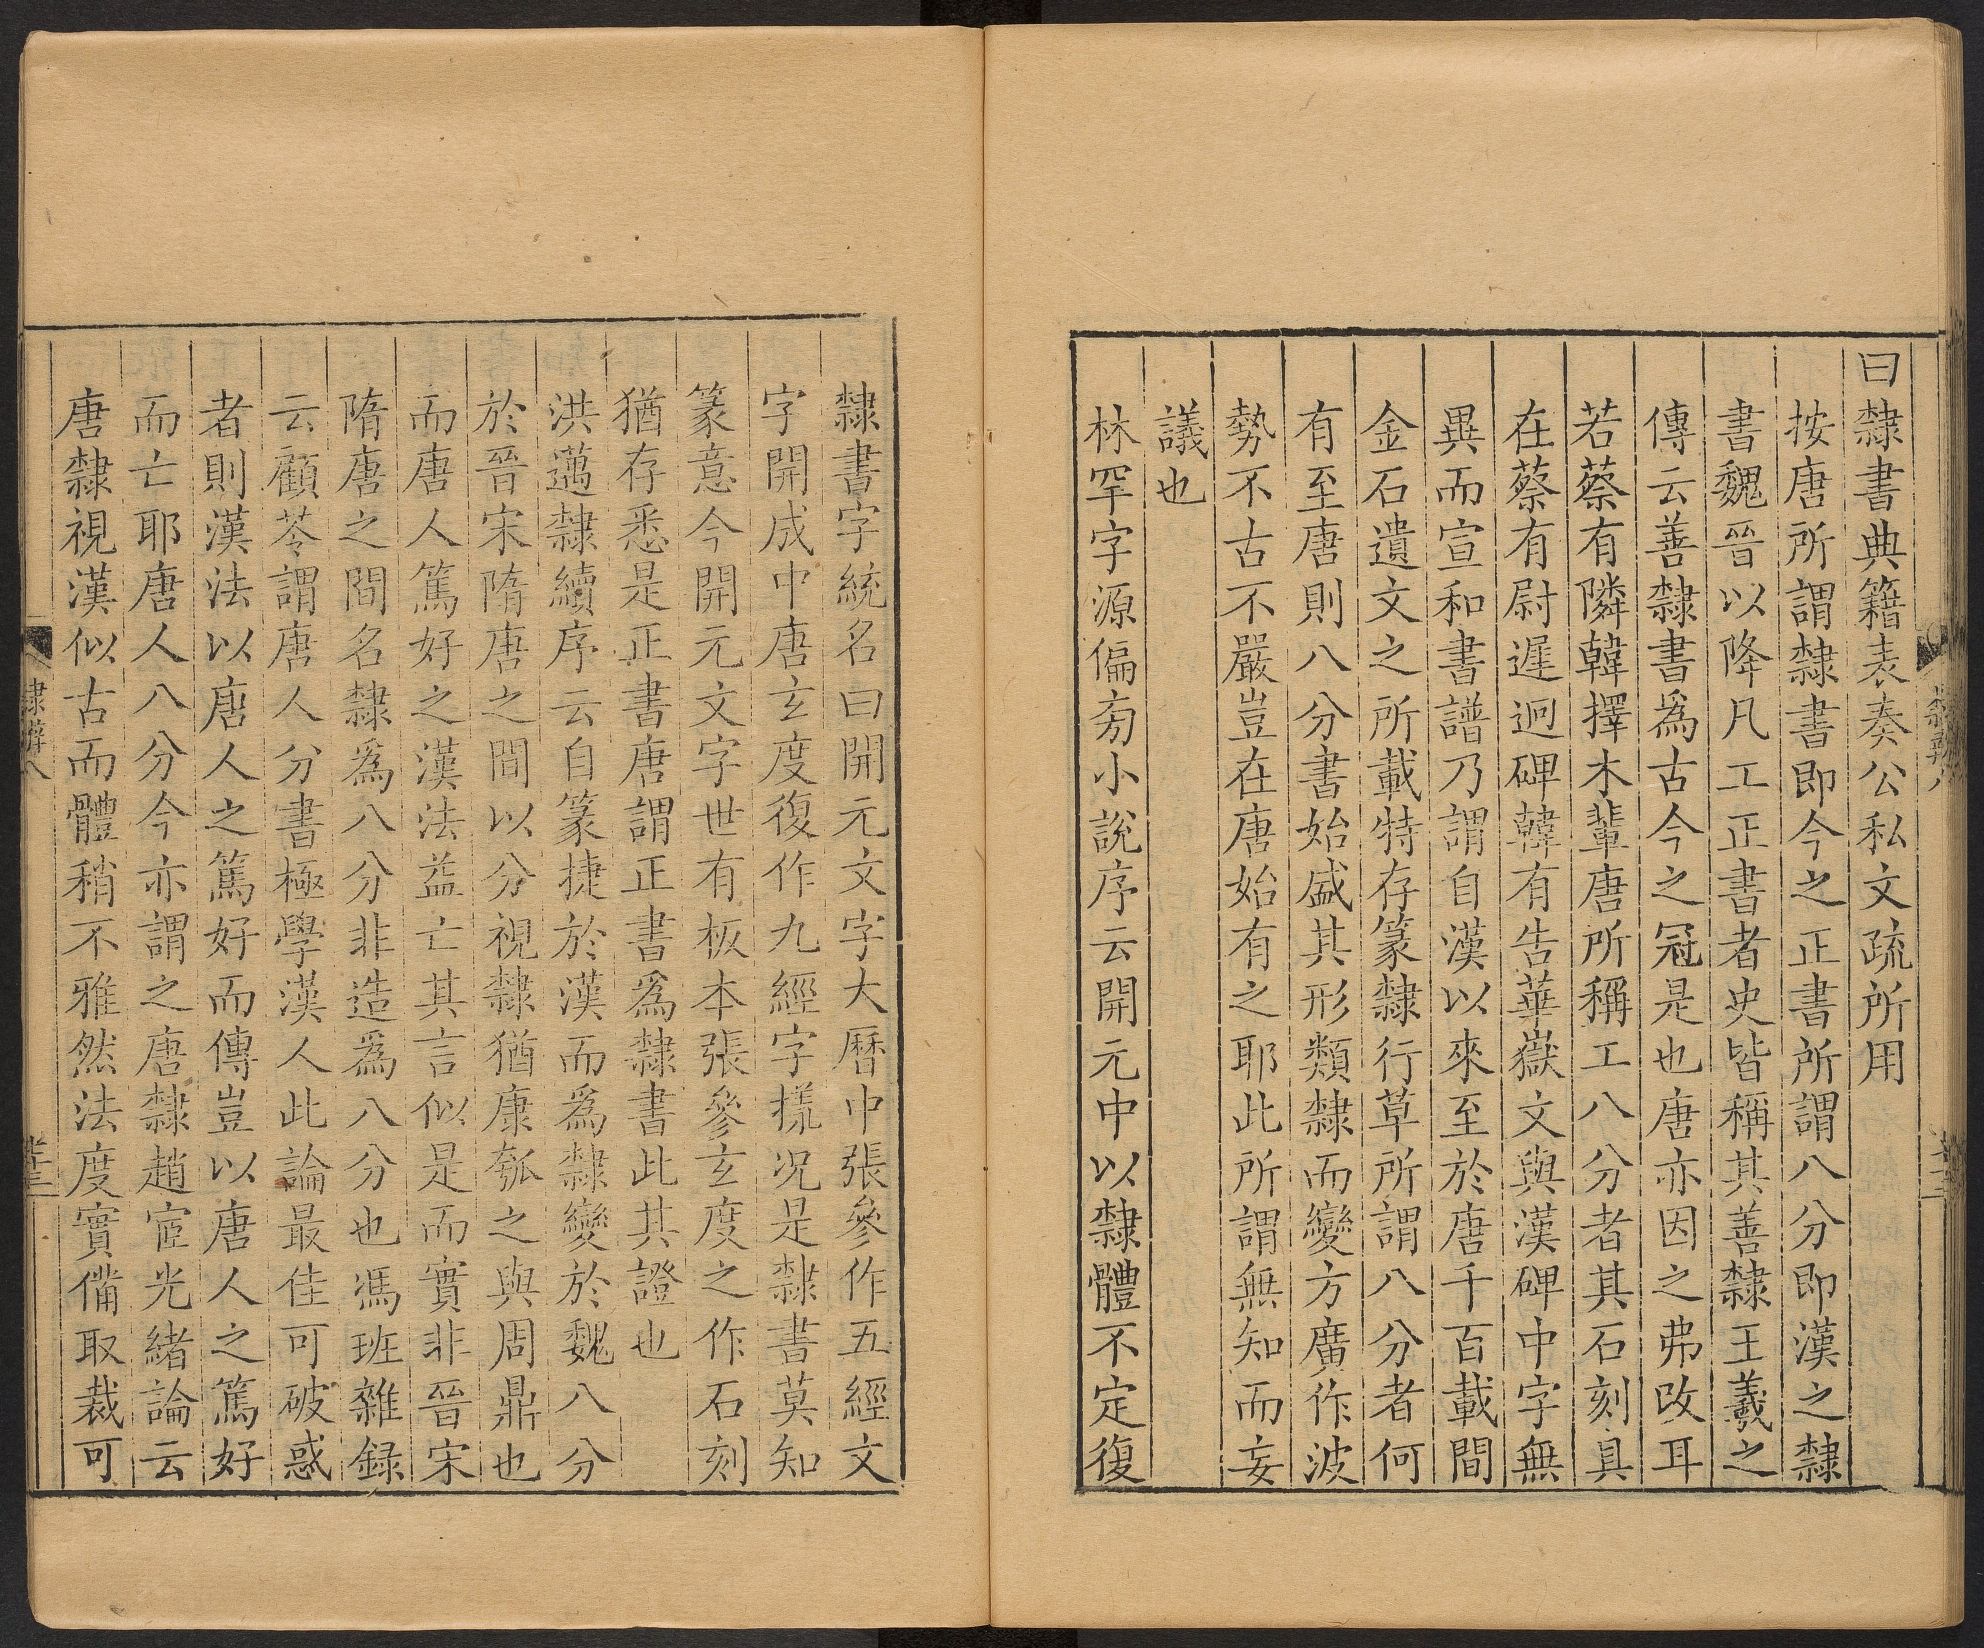 曰隸書典籍表奏公私文疏所用
按唐所謂隸書即今之正書所謂八分即漢之隸
書魏晉以降凡工正書者史皆稱其善隸王羲之
傳云善隸書為古今之冠是也唐亦因之弗改耳
若蔡有隣韓擇木輩唐所稱工八分者其石刻具
在蔡有尉遲迥碑韓有告華嶽文與漢碑中字無
異而宣和書譜乃謂自漢以來至於唐千百載間
金石遺文之所載特存篆隸行草所謂八分者何
有至唐則八分書始盛其形類隸而變方廣作波
勢不古不嚴豈在唐始有之耶此所謂無知而妄
議也
林罕字源偏旁小說序云開元中以隸體不定復
隸書字統名曰開元文字大曆中張參作五經文
字開成中唐玄度復作九經字樣況是隸書莫知
篆意今開元文字世有板本張參玄度之作石刻
猶存悉是正書唐謂正書為隸書此其證也
洪邁隸續序云自篆捷於漢而為隸變於魏八分
於晉宋隋唐之間以分視隸猶康瓠之與周鼎也
而唐人篤好之漢法益亡其言似是而實非晉宋
隋唐之間名隸為八分非造為八分也馮班雜録
云顧苓謂唐人分書極學漢人此論最佳可破惑
者則漢法以唐人之篤好而傳豈以唐人之篤好
而亡耶唐人八分今亦謂之唐隸趙宧光緒論云
唐隸視漢似古而體稍不雅然法度實備取裁可
隸辨八